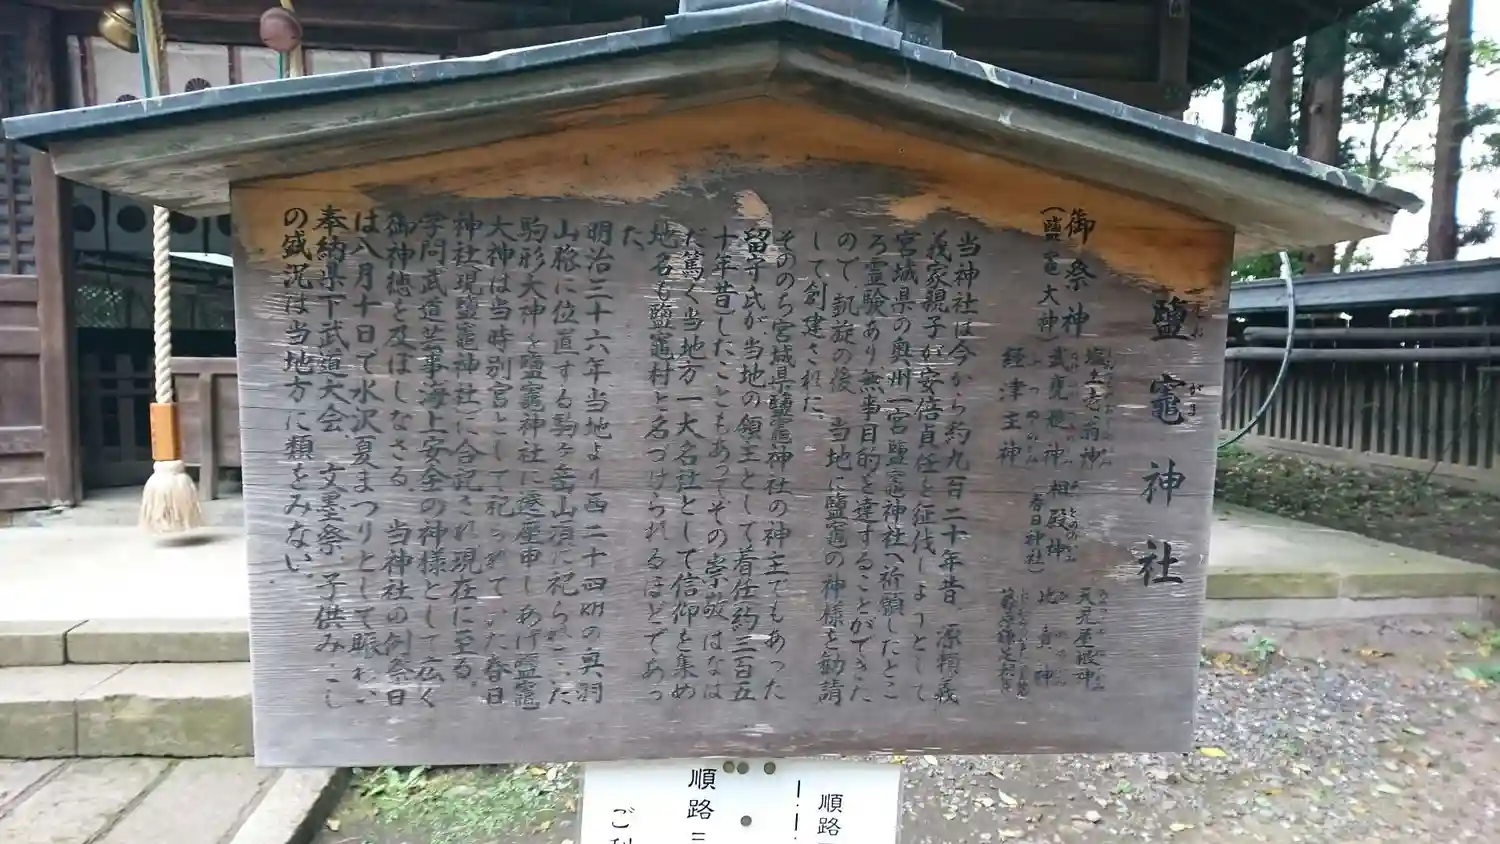 鹽竈神社
しお がま
御祭神
(鹽竈大神)
塩土老翁神
武甕槌神
経津主神
相殿神
(春日神社)
天児屋根神
比賣神
当神社は今から約九百二十年昔、源頼義
義家親子が安倍貞任を征伐しようとして
宮城県の奥州一宮鹽竈神社へ祈願したとこ
ろ霊験あり無事目的を達することができた
ので、凱旋の後、当地に鹽竈の神様を勧請
して創建された。
そののち宮城県鹽竈神社の神主でもあった
留守氏が、当地の領主として着任約三百五
十年昔)したこともあってその崇敬はなは
だ篤く当地方一大名社として信仰を集め
地名も鹽竈村と名づけられるほどであっ
た。
明治三十六年当地より西二十四KMの
山脉に位置する駒ヶ岳山頂に祀られていた
駒形大神を鹽竈神社に遷座申しあげ鹽竈
大神は当時別宮として祀られていた春日
神社(現鹽竈神社)に合祀され現在に至る。
学問武道芸事海上安全の神様として広く
御神徳を及ぼしなさる。当神社の例祭日
は八月十日で水沢夏まつりとして賑わい
奉納県下武道大会、文墨祭、子供みこし
の盛況は当地方に類をみない。
順路
順路
ご利